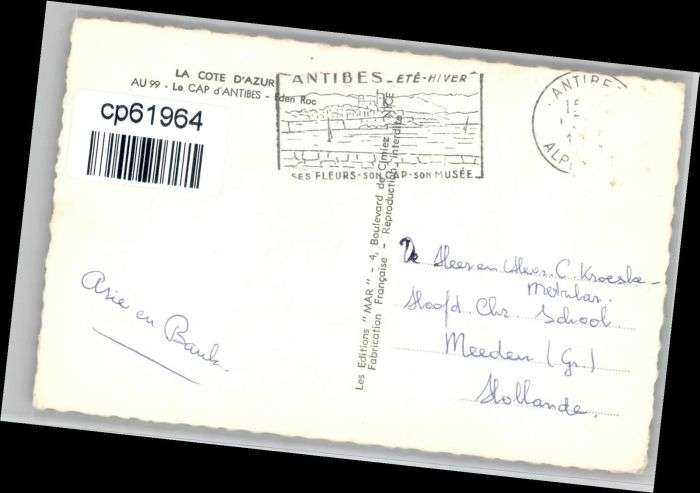 LA COTE D'AZUR
AU 99 - Le CAP d'ANTIBES - Eden Roc
cp61964
ANTIBES - ETÉ-HIVER
SES FLEURS-SON CAP-SON MUSÉE
ANTIBE
15
ALP
Les Editions "MAR" - 4, Boulevard de Cimiez - NICE
Fabrication Française - Reproduction Interdite
De Heer en Mevr. C. Kroeske-
Hoofd. Chr. School.
Meeden (Gr.)
Hollande.
Asie en Bauk.